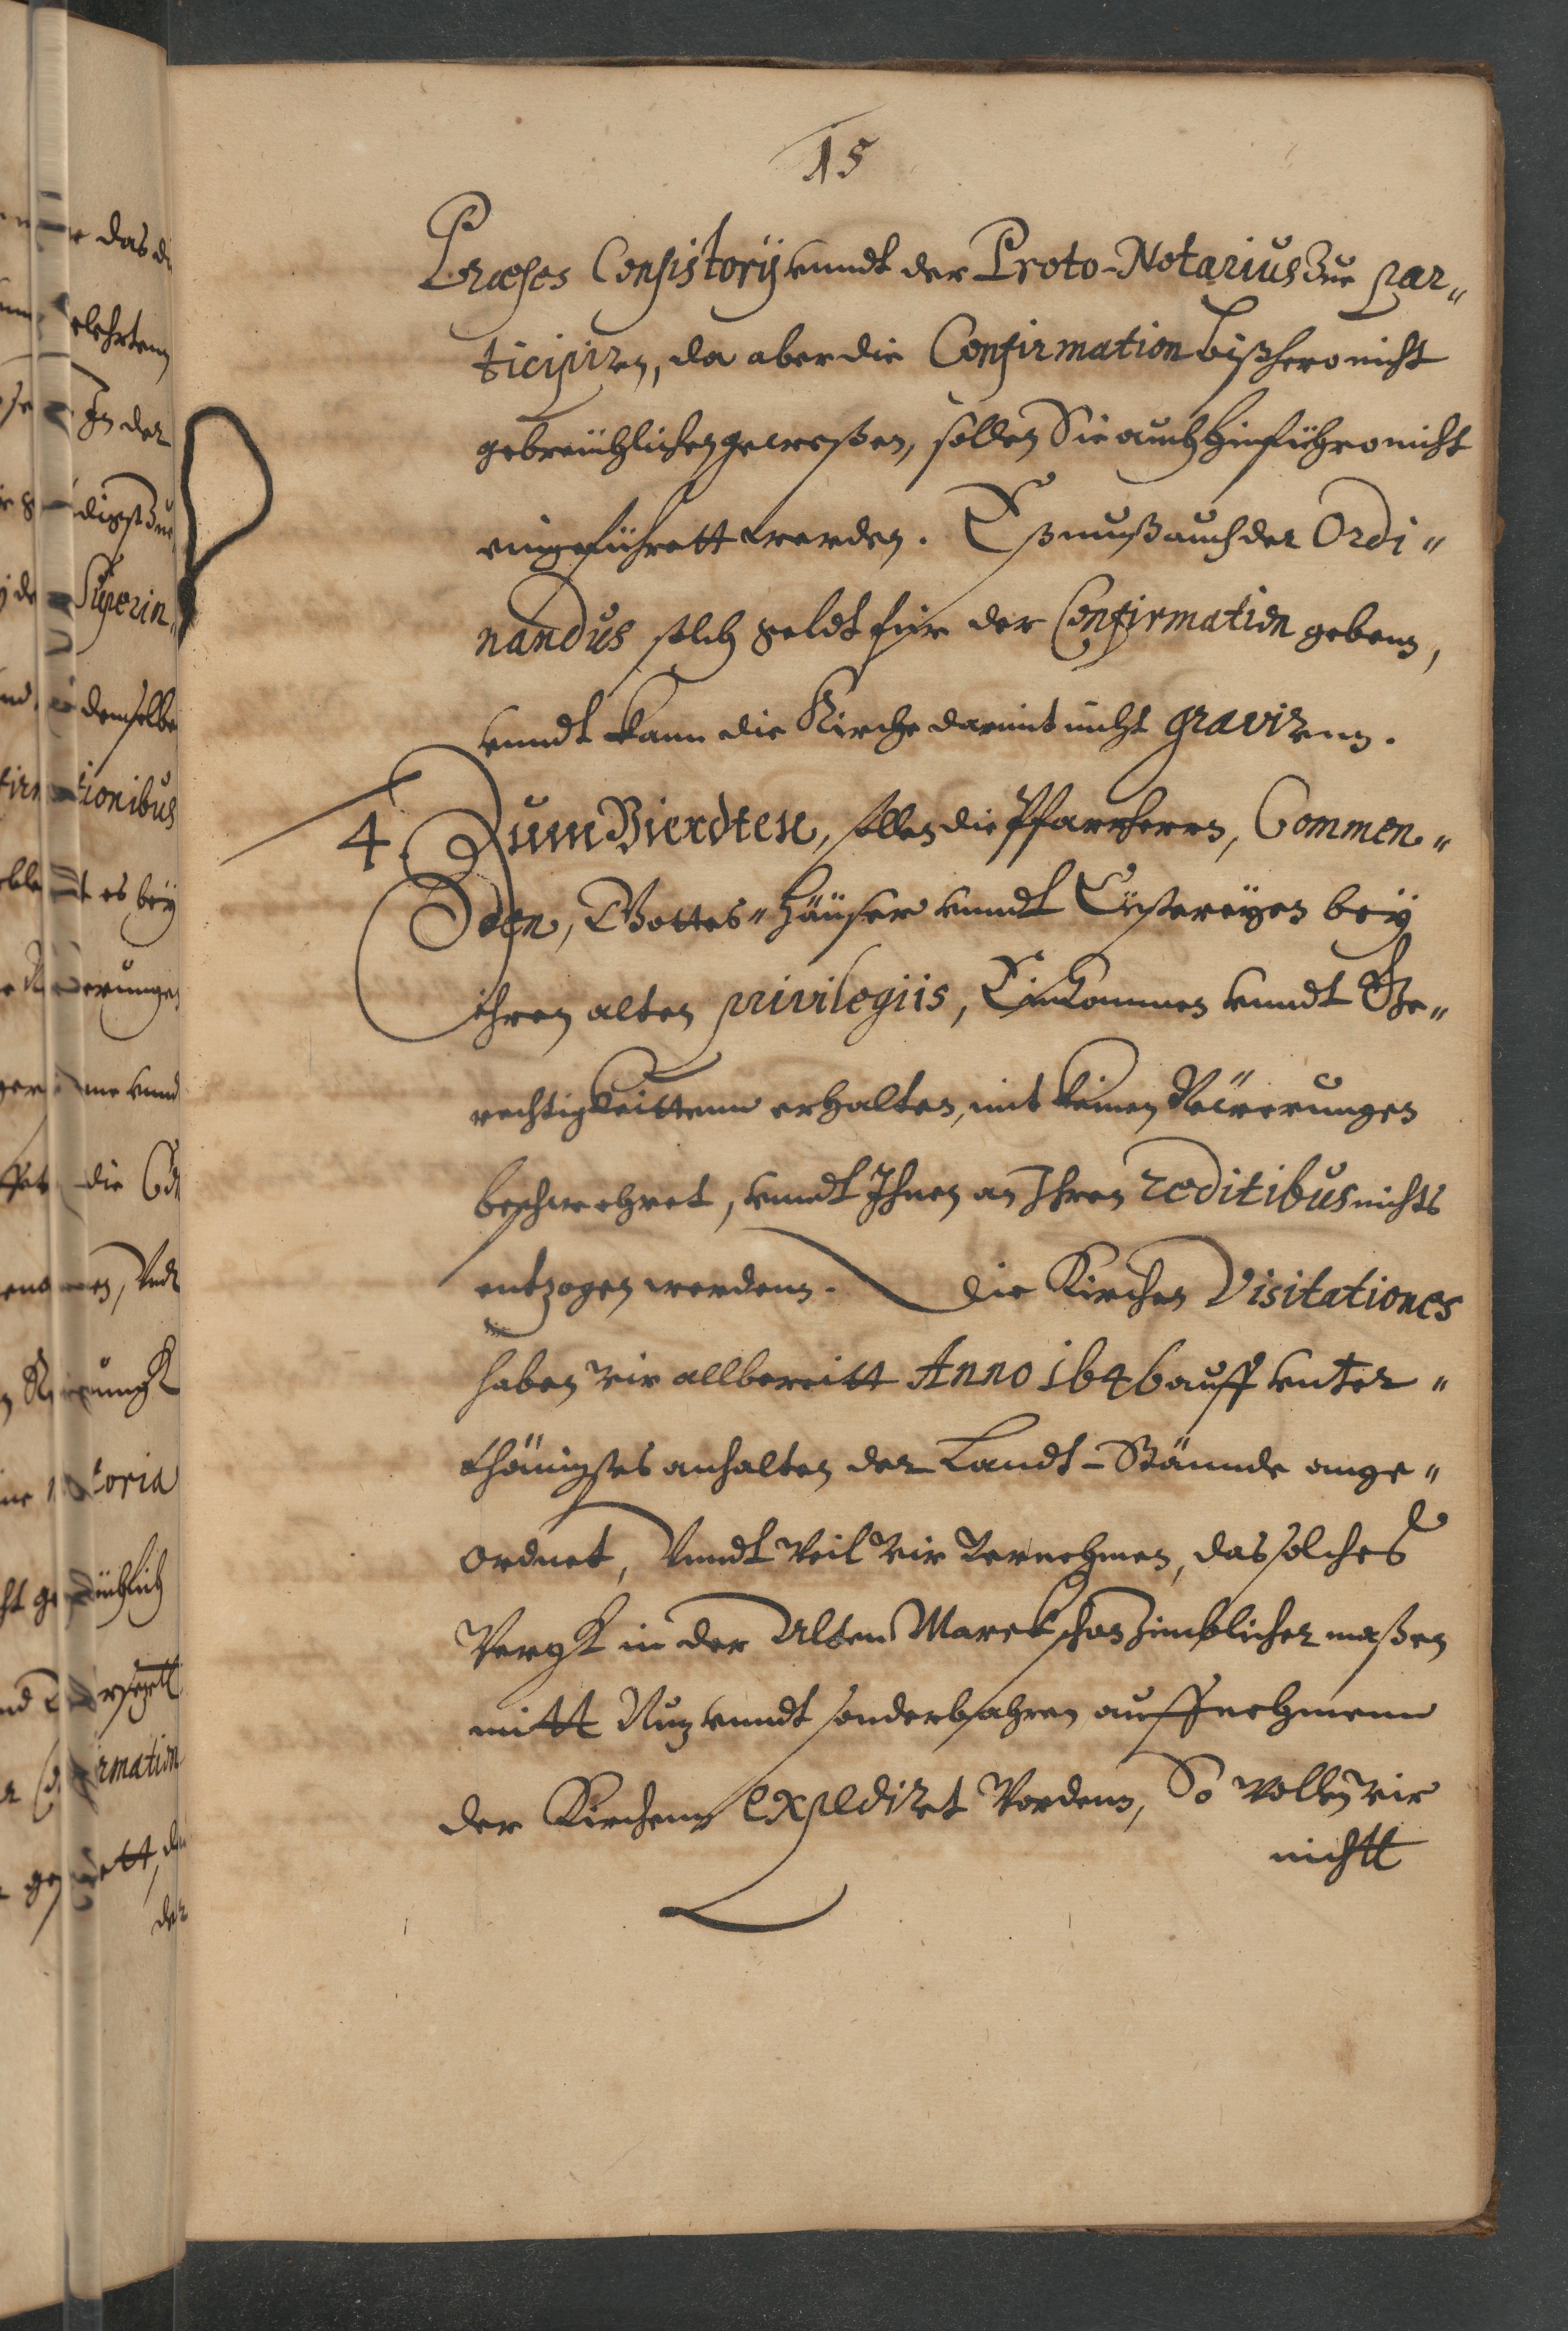 15
Præses Consistorij vnndt der Proto-Notarius Zue par„
ticipiren, da aber die Confirmation bißhero nicht
gebreüchlichen gewesßen, sollen Sie auch hinführo nicht
eingeführett werden. Eß muß auch der Ordi„
nandus solch geldt für der Confirmation geben,
vnndt kann die Kirche darmit nicht graviren.
4. Zum Vierdten, sollen die Pfarrherrn, Commen„
den, Gottes„Häuser vnndt Cüstereyen bey
ihren alten privilegiis, Einkommen vnndt Ge„
rechtigkeittenn erhalten, mit keinen Näwerungen
beschwehret, vnndt Ihnen an Ihren reditibus nichts
entzogen werdenn. Die Kirchen Visitationes
haben wir allbereitt Anno 1646 auff vnter„
thänigstes anhalten der Landt-Stännde ange„
ordnet, Vnndt Weil Wir Vernehmen, das solches
Wergk in der Alten Marck schon zimblicher maßen
mitt Nuz vnndt sonderbahren auffnehmenn
der Kirchenn expediret Wordenn, So Wollen wir
nichtt
das
elehrten
In der
Superin„
demselbe
tionibus
es bey
erungen
vnnd
die
toria
rmation
der